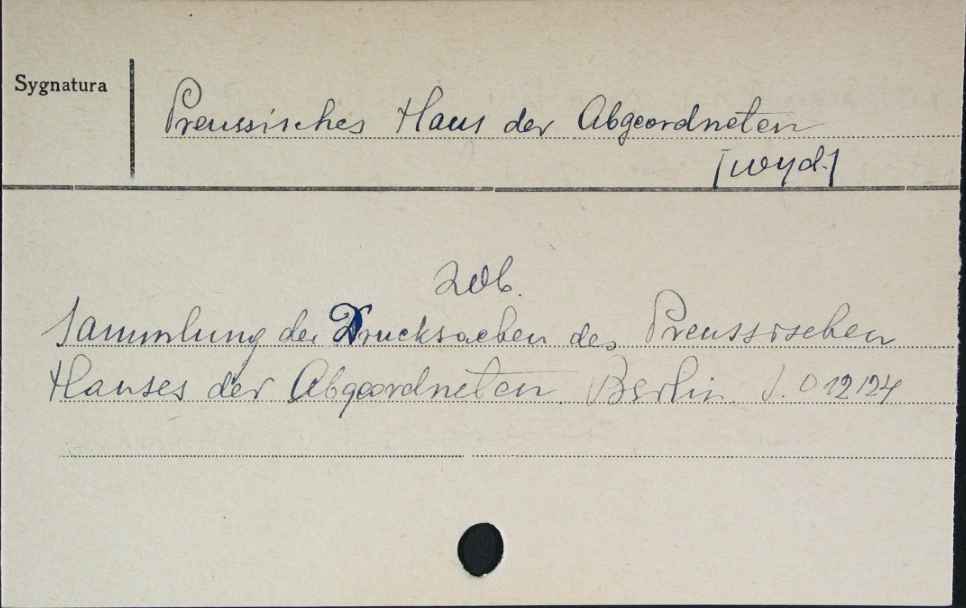 Sygnatura
Preussisches Haus der Abgeordneten
[wyd.]
zob.
Sammlung der Drucksachen des Preussischen
Hauses der Abgeordneten. Berlin. J. O 12124